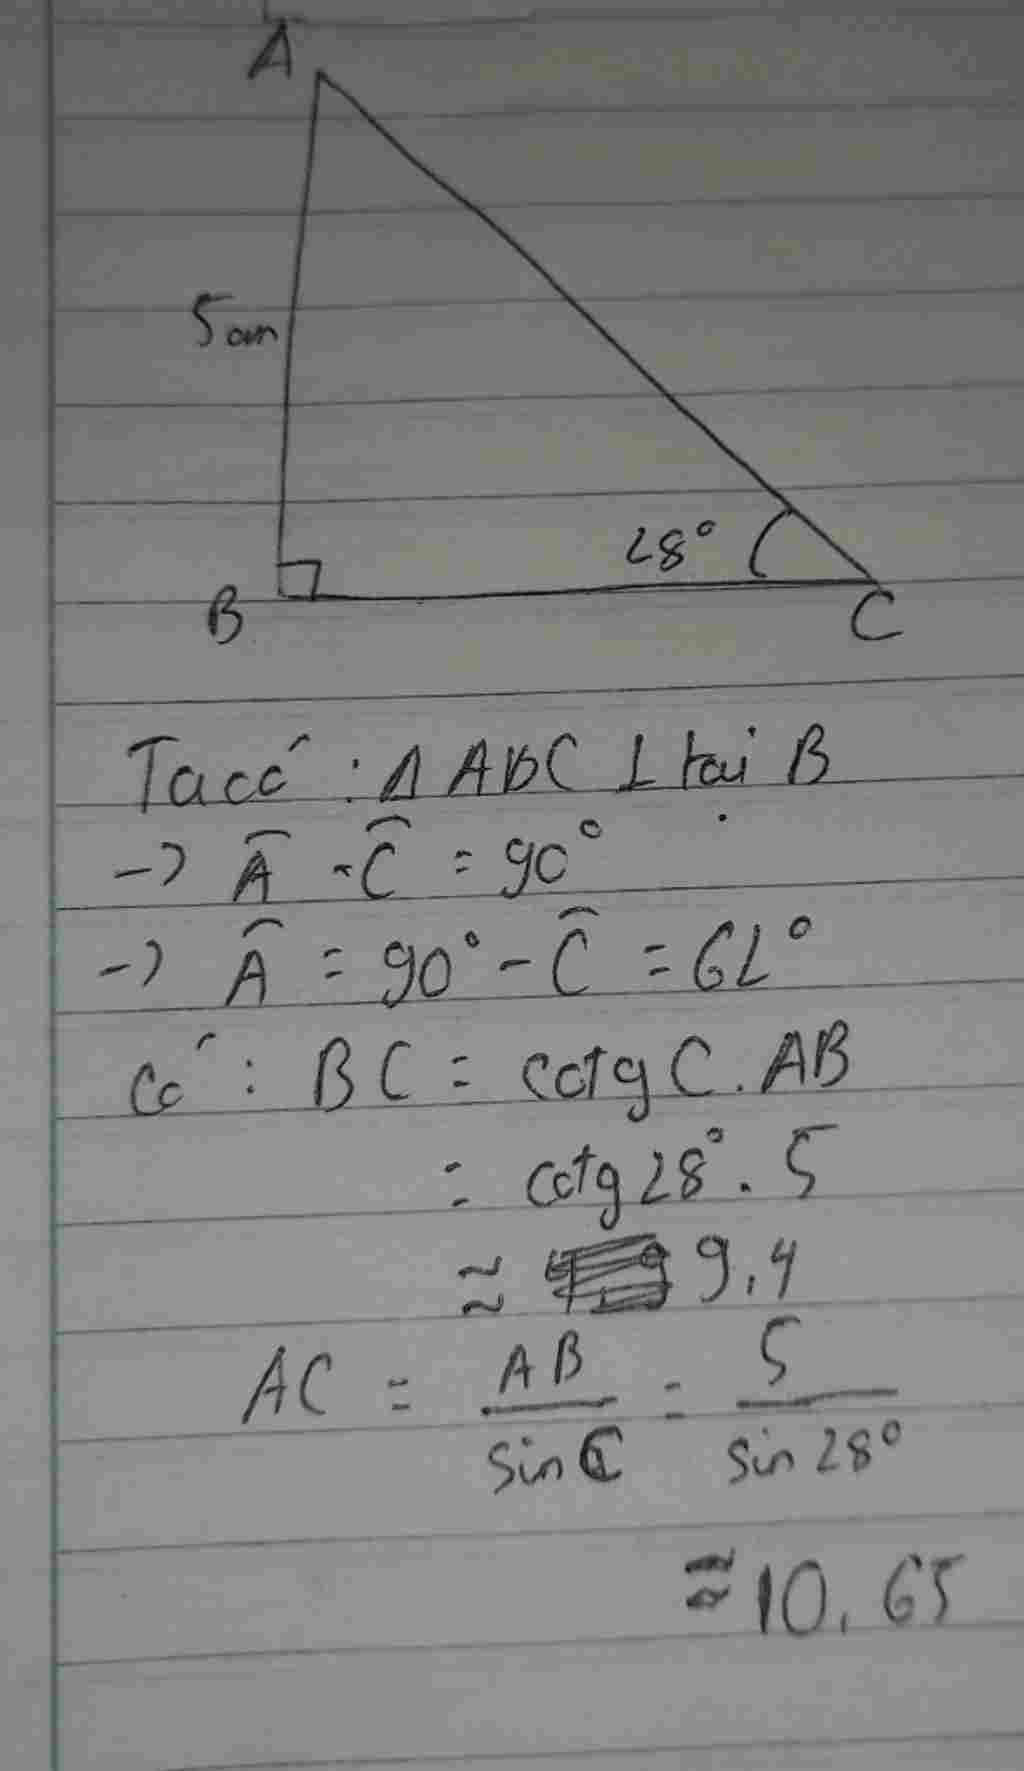 A
5cm
28°
B
C
Ta có : Δ ABC ⊥ tại B
-> Â - Ĉ = 90°
-> Â = 90° - Ĉ = 62°
Có : BC = cotg C . AB
= cotg 28° . 5
≈ 9,4
AC = AB / sin C = 5 / sin 28°
≈ 10,65